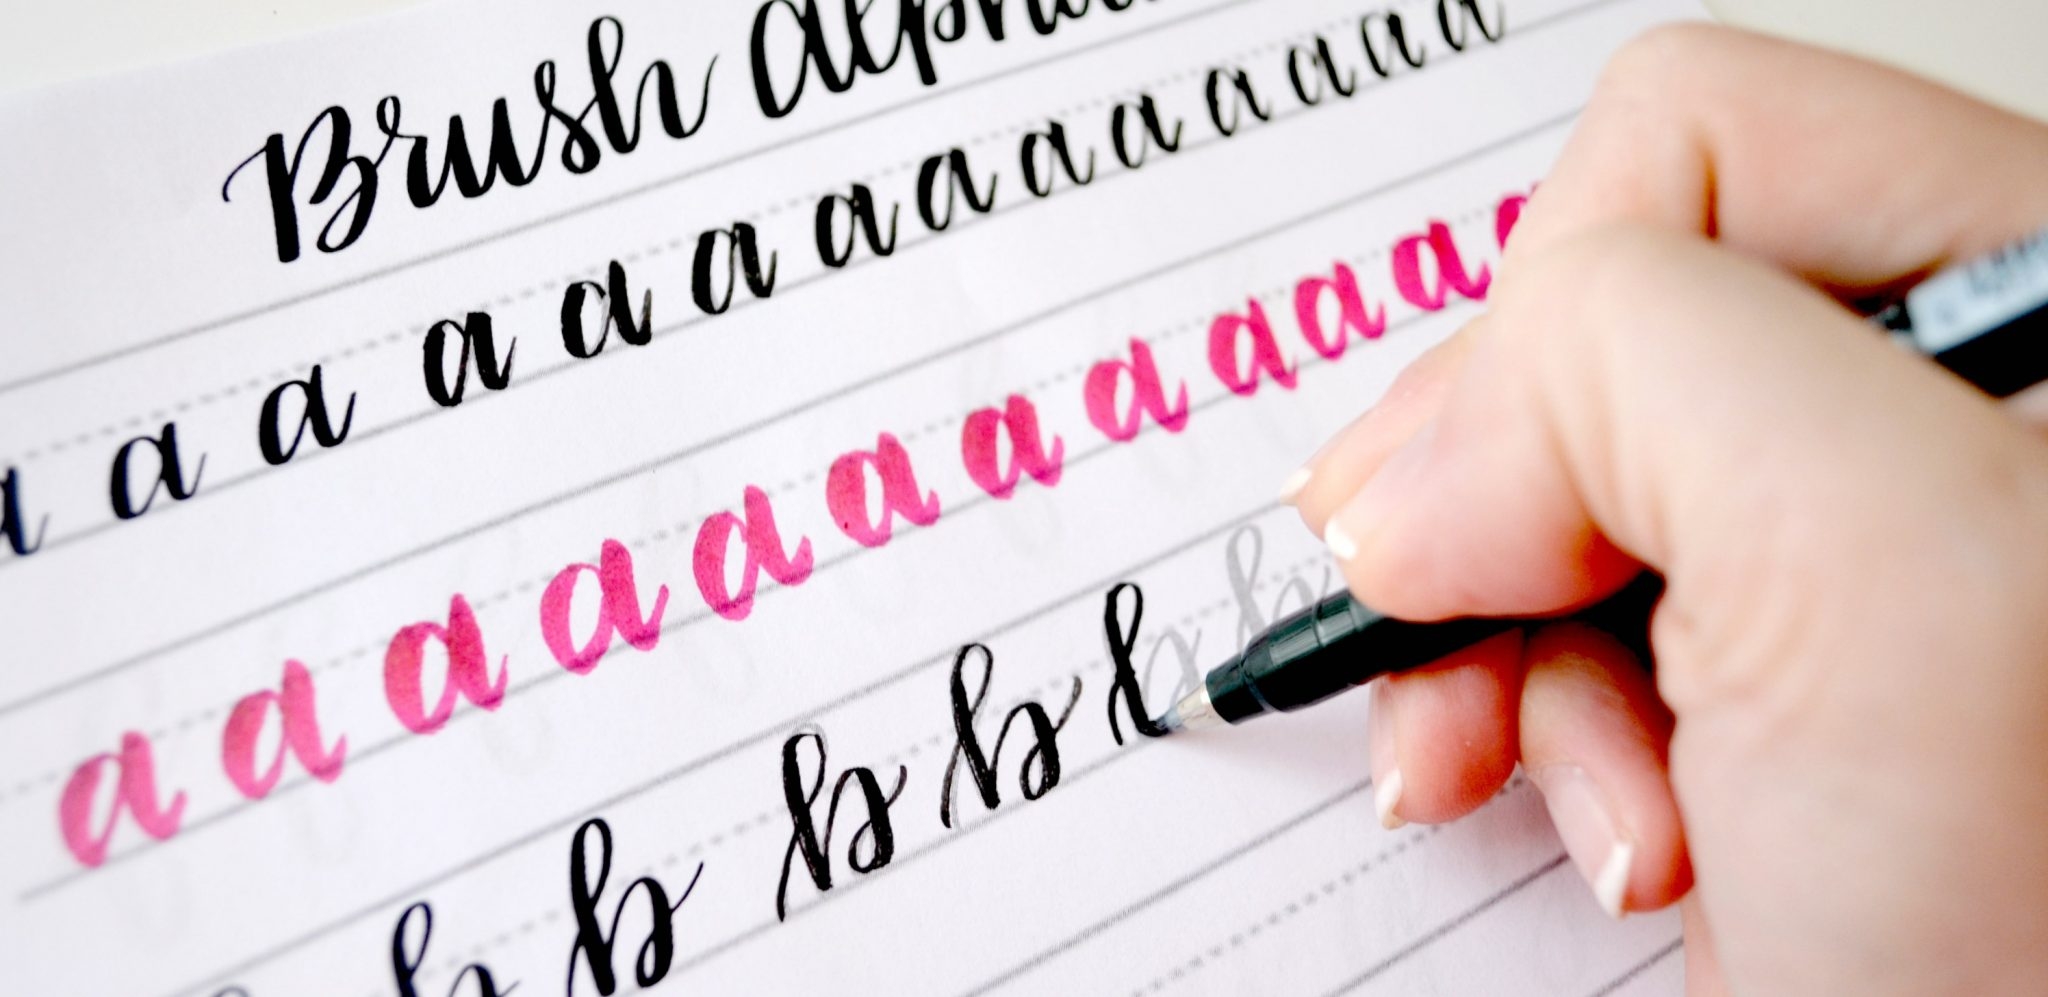 Brush alpha
a a a a a a a a a a a a a a
a a a a a a a a a a a a
b b b b b b